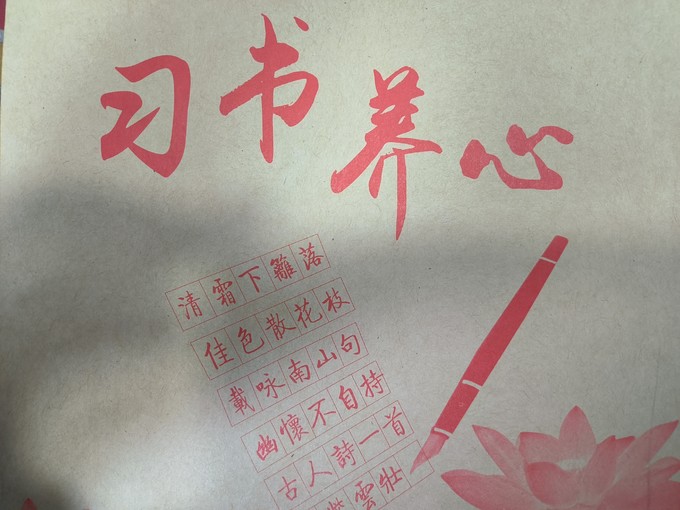 习书养心
清霜下籬落
佳色散花枝
載咏南山句
幽懷不自持
古人詩一首
雲壯